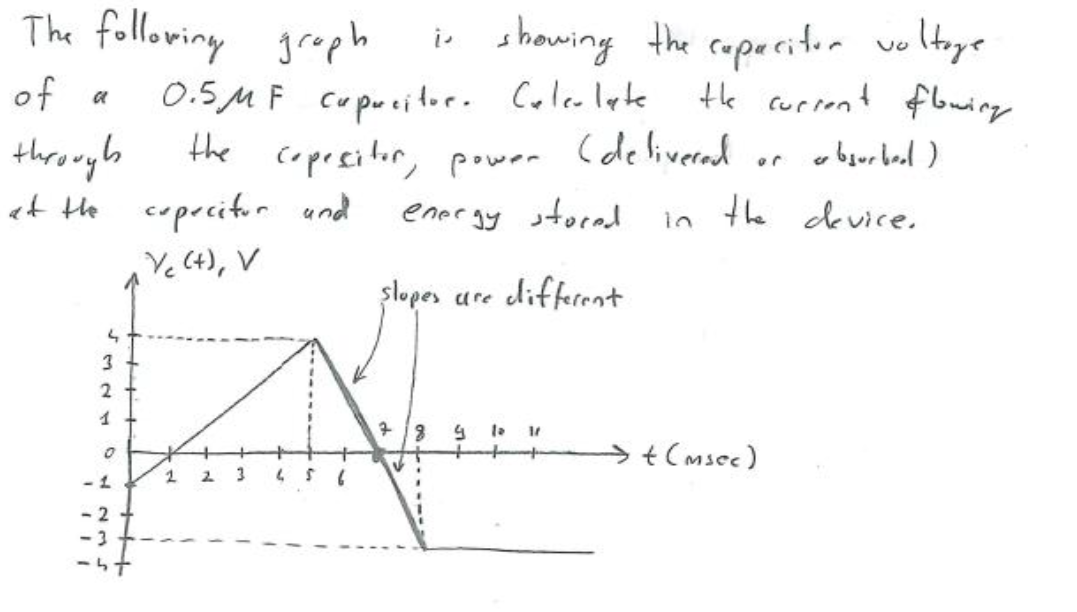 The following graph is showing the capacitor voltage
of a 0.5μF capacitor. Calculate the current flowing
through the capacitor, power (delivered or absorbed)
at the capacitor and energy stored in the device.
Vc(t), V
slopes are different
4
3
2
1
7 8 9 10 11
0
t(msec)
1 2 3 4 5 6
-1
-2
-3
-4